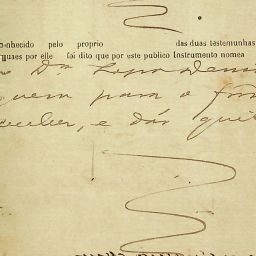 onhecido pelo proprio das duas testemunhas
quaes por elle foi dito que por este publico Instrumento nomea
Dr. Lopo Deni
quem para o fim
ceceber, e dár quit